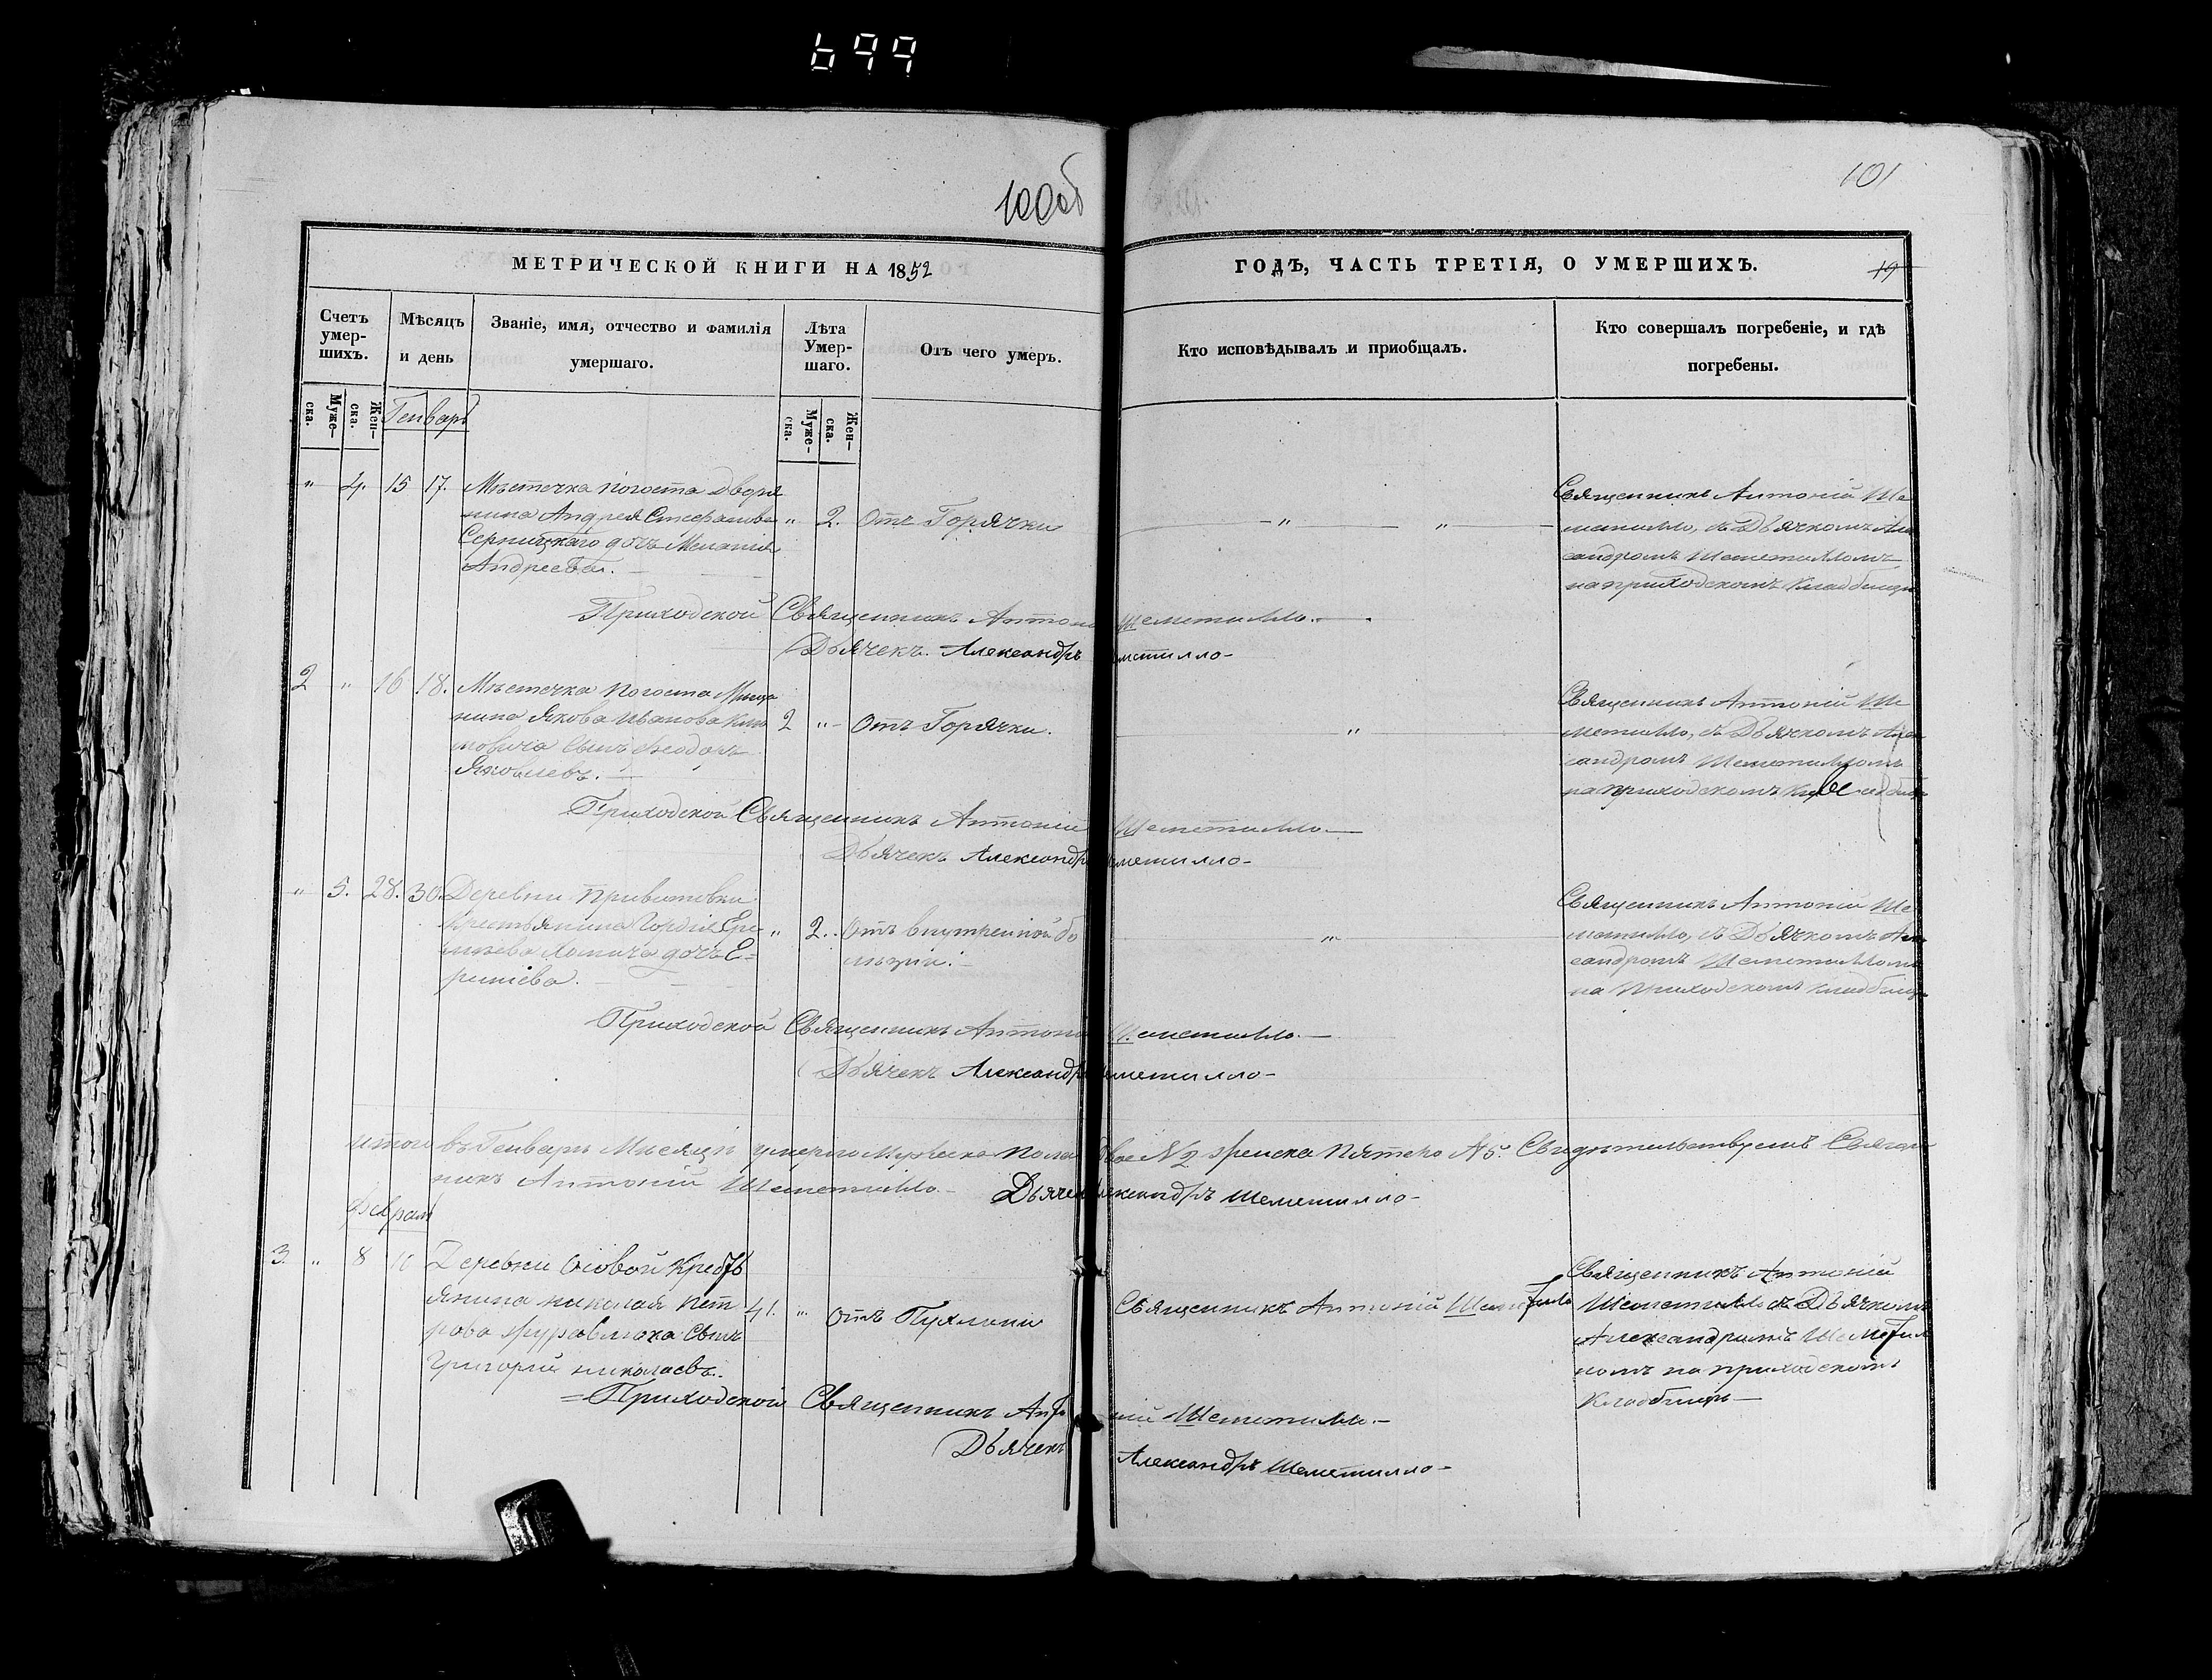 699
100об
101
МЕТРИЧЕСКОЙ КНИГИ НА 1852
ГОДЪ, ЧАСТЬ ТРЕТІЯ, О УМЕРШИХЪ.
19
Счетъ умер-шихъ.
Мѣсяцъ и день
Званіе, имя, отчество и фамилія умершаго.
Лѣта Умер-шаго.
Отъ чего умеръ.
Кто исповѣдывалъ и пріобщалъ.
Кто совершалъ погребеніе, и гдѣ погребены.
Муже-ска.
Жен-ска.
Генварь
Муже-ска.
Жен-ска.
" 4. 15 17. Мѣстечка Погоста Дворя
нина Андрея Стефанова " 2. Отъ Горячки " "
Серпицкаго дочь Меланія
Андреева.
Священникъ Антоній Ше
метилло, съ Дьячкомъ Алек
сандромъ Шеметилломъ
на приходскомъ кладбищѣ
Приходской Священникъ Антоній Шеметилло.
Дьячекъ Александръ Шеметилло
2 " 16 18. Мѣстечка Погоста Мѣща
нина Якова Иванова 2 " Отъ Горячки. "
сынъ Феодоръ
Яковлевъ.
Священникъ Антоній Ше
метилло, съ Дьячкомъ Алек
сандромъ Шеметилломъ
на приходскомъ
Приходской Священникъ Антоній Шеметилло
Дьячекъ Александръ Шеметилло
" 5. 28. 30. Деревни
Крестьянина Гордія Ере " 2. Отъ внутренной бо "
дочь Е=
лѣзни.
Священникъ Антоній Ше
метилло, съ Дьячкомъ Алек
сандромъ Шеметилломъ
на приходскомъ кладбищѣ
Приходской Священникъ Антоній Шеметилло.
Дьячекъ Александръ Шеметилло
Итого въ Генварѣ Мѣсяцѣ умерло Мужеска Пола двое № 2 Женска Пятеро № 5. Свидѣтельствуемъ Священ
никъ Антоній Шеметилло. Дьячекъ Александръ Шеметилло
Февраль
3. " 8 10 Деревни Осовой Кресть
янина Николая Пет 41. " отъ Пухлини Священникъ Антоній Шеметилло
рова Журавлюка сынъ
Григорій Николаевъ.
Священникъ Антоній
Шеметилло съ Дьячкомъ
Александромъ Шеметил
ломъ на приходскомъ
Кладбищѣ
Приходской Священникъ Антоній Шеметилло.
Дьячекъ Александръ Шеметилло